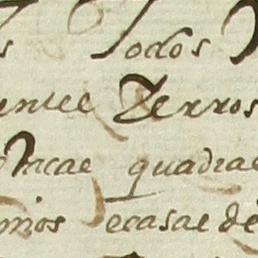 s Todos
entee Zerros
quadrae
mos ecasae de